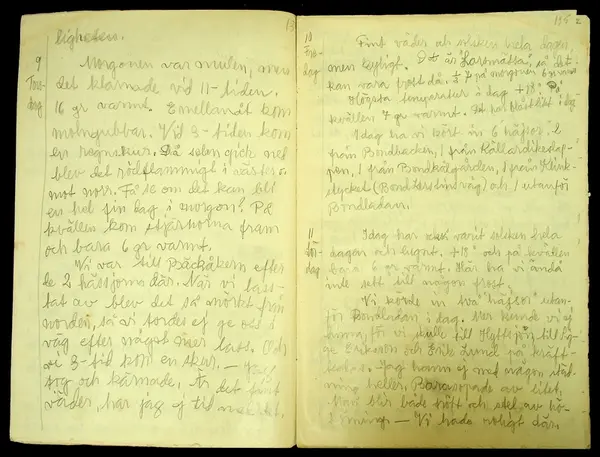 ligheten.
9
Tors-
dag
Morgonen var mulen, men
det klarnade vid 11-tiden.
16 gr varmt. Emellanåt kom
molngubbar. Vid 3-tiden kom
en regnskur. Då solen gick ned
blev det rödflammigt i väster o.
mot norr. Få se om det kan bli
en hel fin dag i morgon? På
kvällen kom stjärnorna fram
och bara 6 gr varmt.
Vi var till Bäckåkern efter
de 2 hässjorna där. När vi las-
tat av blev det så mörkt från
norden, så vi tordes ej ge oss i
väg efter något mer lass. Och
vid 3-tid kom en skur. — Jag
och kärnade. Är det fint
väder, har jag ej tid med det.
115
10
Fre-
dag
Fint väder och solsken hela dagen,
men kyligt. Det är "Larsmässa" så det
kan vara frött då. + 7 på morgonen 6 gr varmt
Högsta temperatur i dag +18°. På
kvällen 7 gr varmt. Det har blåst
Idag ha vi kört in 6 "häftor" 2
från Bondbacken, 1 från Källardikeslap-
pen, 1 från Bondkålgården, 1 från Klink-
stycket (Bond Kerstins väg) och 1 utanför
Bondladan.
11
Lör-
dag
Idag har varit solsken hela
dagen och lugnt. +18° och på kvällen
bara 6 gr varmt. Här ha vi ändå
inte sett till någon frost.
Vi körde in två "häftor" utan-
för Bondladan i dag. Mer kunde vi ej
hinna, för vi skulle till Hyttsjön till
ge Eriksson och Erik Lund på kräft-
kalas. Jag hann ej med någon städ-
ning heller. Bara sopade av litet.
Man blir både trött och stel av
— Vi hade roligt där.